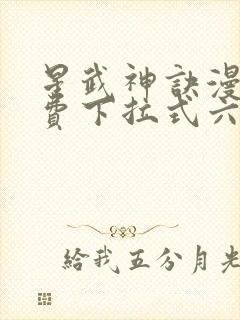 星武神訣漫
費下拉式六
給我五分月光